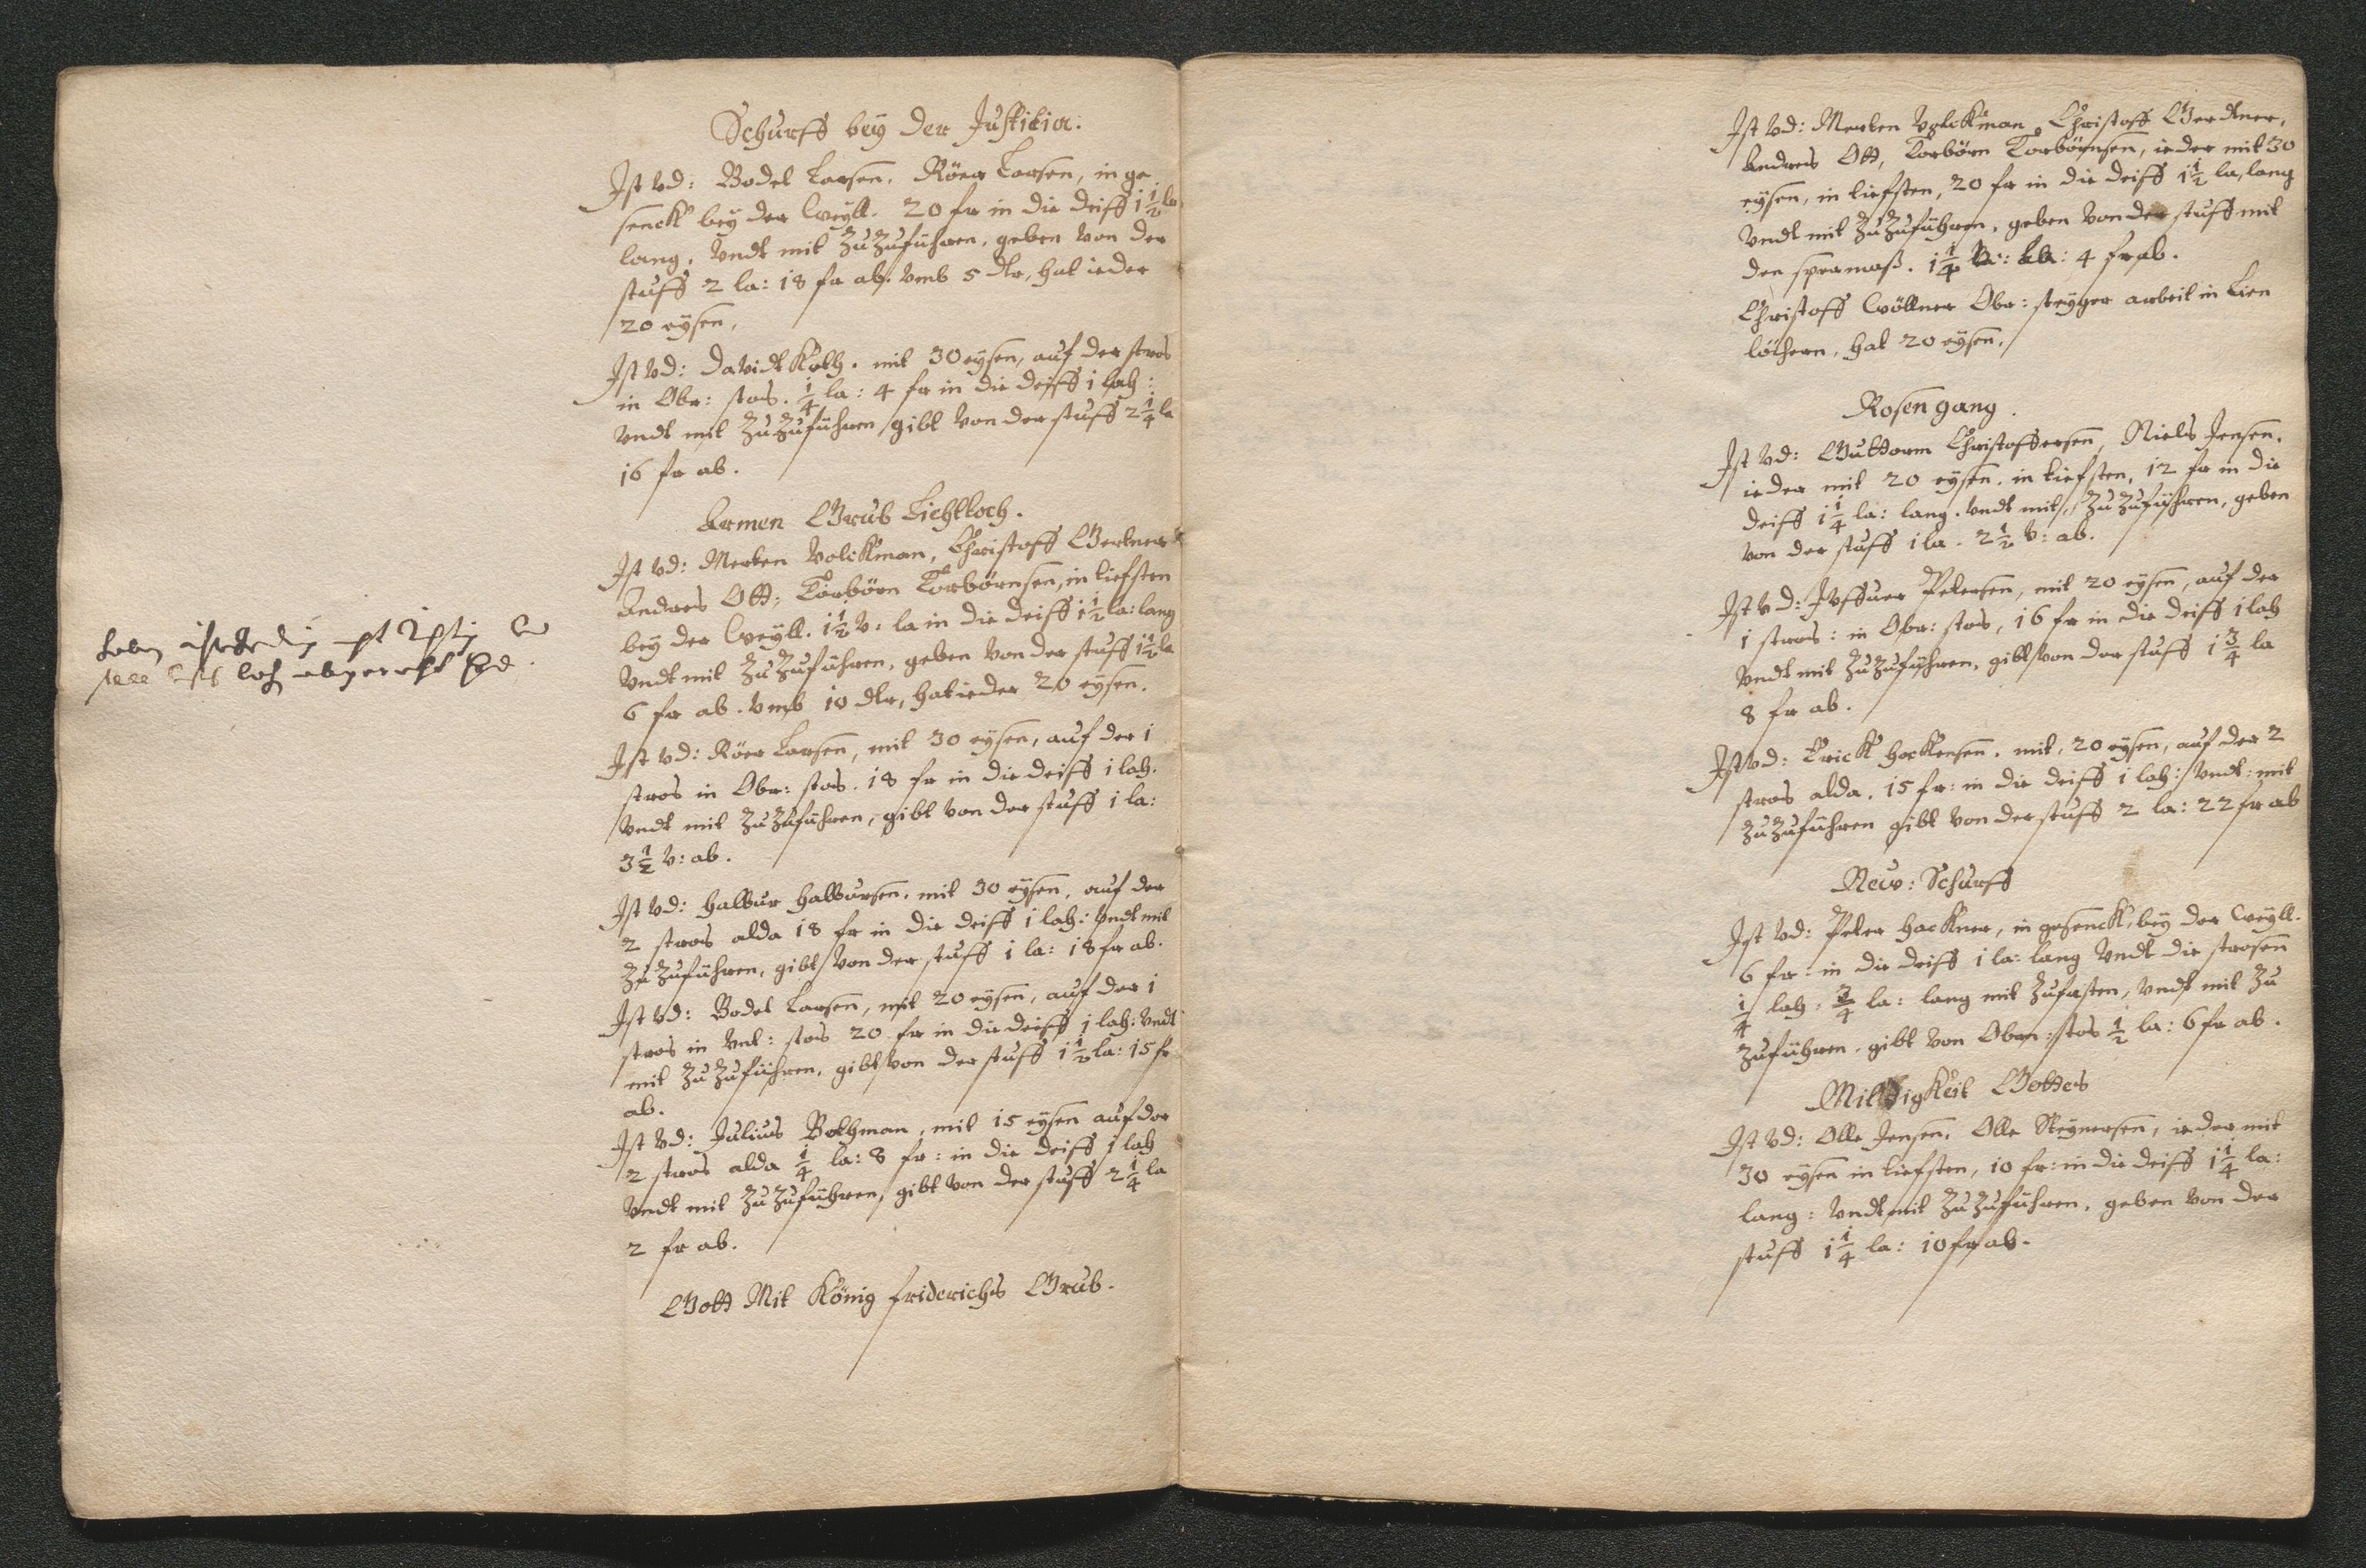 Schurff bey der Justitia.
Ist vd: Bodel Larsen. Röer Larsen, in ge
senck bey der Weyll. 20 fr in die deiff 1 1/2 la
lang, vndt mit Zu Zuführen, geben von der
stuff 2 la: 18 fr ab. vmb 5 dlr, hat ieder
20 eysen,
Ist vd: Davidt Koth. mit 30 eysen, auf der stros
in Obr: stos. 1/4 la: 4 fr in die deiff 1 lah:
vndt mit Zu Zuführen gibt von der stuff 2 1/4 la
16 fr ab.
Armen Grub Liechtloch.
Ist vd: Merten Volckman, Christoff Gertner
Andres Ott, Torbörn Torbörnsen, in tiefsten
bey der Weyll. 1 1/2 v: la in die deiff 1 1/2 la: lang
vndt mit Zu Zuführen, geben von der stuff 1 1/2 la
6 fr ab. vmb 10 dlr, hat ieder 20 eysen.
Ist vd: Röer Larsen, mit 30 eysen, auf der 1
stros in Obr: stos. 18 fr in die deiff 1 lah.
vndt mit Zu Zuführen, gibt von der stuff 1 la:
3 1/2 v: ab.
Ist vd: Halvur Halvursen. mit 30 eysen, auf der
2 stros alda 18 fr in die deiff 1 lah: vndt mit
Zu Zuführen, gibt von der stuff 1 la: 18 fr ab.
Ist vd: Bodel Larsen, mit 20 eysen, auf der 1
stros in vnt: stos 20 fr in die deiff 1 lah: vndt
mit Zu Zuführen, gibt von der stuff 1 1/2 la: 15 fr
ab.
Ist vd: Julius Bothman, mit 15 eysen auf der
2 stros alda 1/4 la: 8 fr: in die deiff 1 lah
vndt mit Zu Zuführen, gibt von der stuff 2 1/4 la
2 fr ab.
Gott Mit König friderichs Grub.
loch
Ist vd: Merten Volckman, Christoff Gerdner,
Andres Ott, Torbörn Torbörnsen, ieder mit 30
eysen, in tiefsten, 20 fr in die deiff 1 1/2 la, lang
vndt mit Zu Zuführen, geben von der stuff mit
den spermaß. 1 1/4 la: 4 fr ab.
Christoff Wöllner Obr: steyger arbeit in Lien
löchern, hat 20 eysen.
Rosen gang.
Ist vd: Guttorm Christoffersen, Niels Jensen.
ieder mit 20 eysen. in tiefsten, 12 fr in die
deiff 1 1/4 la: lang. vndt mit, Zu Zuführen, geben
von der stuff 1 la. 2 1/2 v: ab.
Ist vd: Iuffuer Petersen, mit 20 eysen, auf der
1 stros: in Obr: stos, 16 fr in die deiff 1 lah
vndt mit Zu Zuführen, gibt von der stuff 1 3/4 la
8 fr ab.
Ist vd: Erick Hackensen. mit, 20 eysen, auf der 2
stros alda. 15 fr: in die deiff 1 lah: vndt: mit
Zu Zuführen gibt von der stuff 2 la: 22 fr ab
New: Schurff
Ist vd: Peter Hackner, in gesenck, bey der Weyll.
6 fr: in die deiff 1 la: lang vndt die strosen
1/4 lah: 3/4 la: lang mit Zufristen, vndt mit Zu
Zuführen. gibt von Obrn: stos 1/2 la: 6 fr ab.
Mildigkeit Gottes
Ist vd: Olle Jensen. Olle Steynersen, ieder mit
30 eysen in tiefsten, 10 fr: in die deiff 1 1/4 la:
lang: vndt mit Zu Zuführen, geben von der
stuff 1 1/4 la: 10 fr ab.